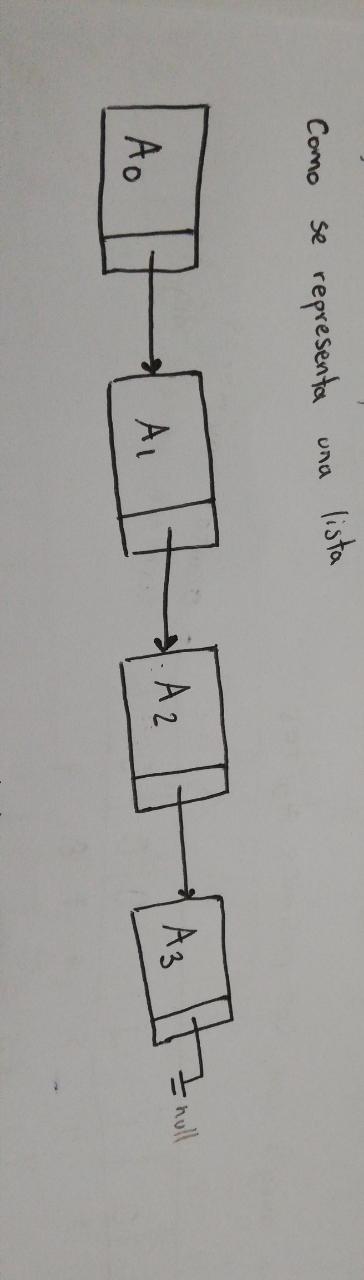 Como se representa una lista
A0 A1 A2 A3 null